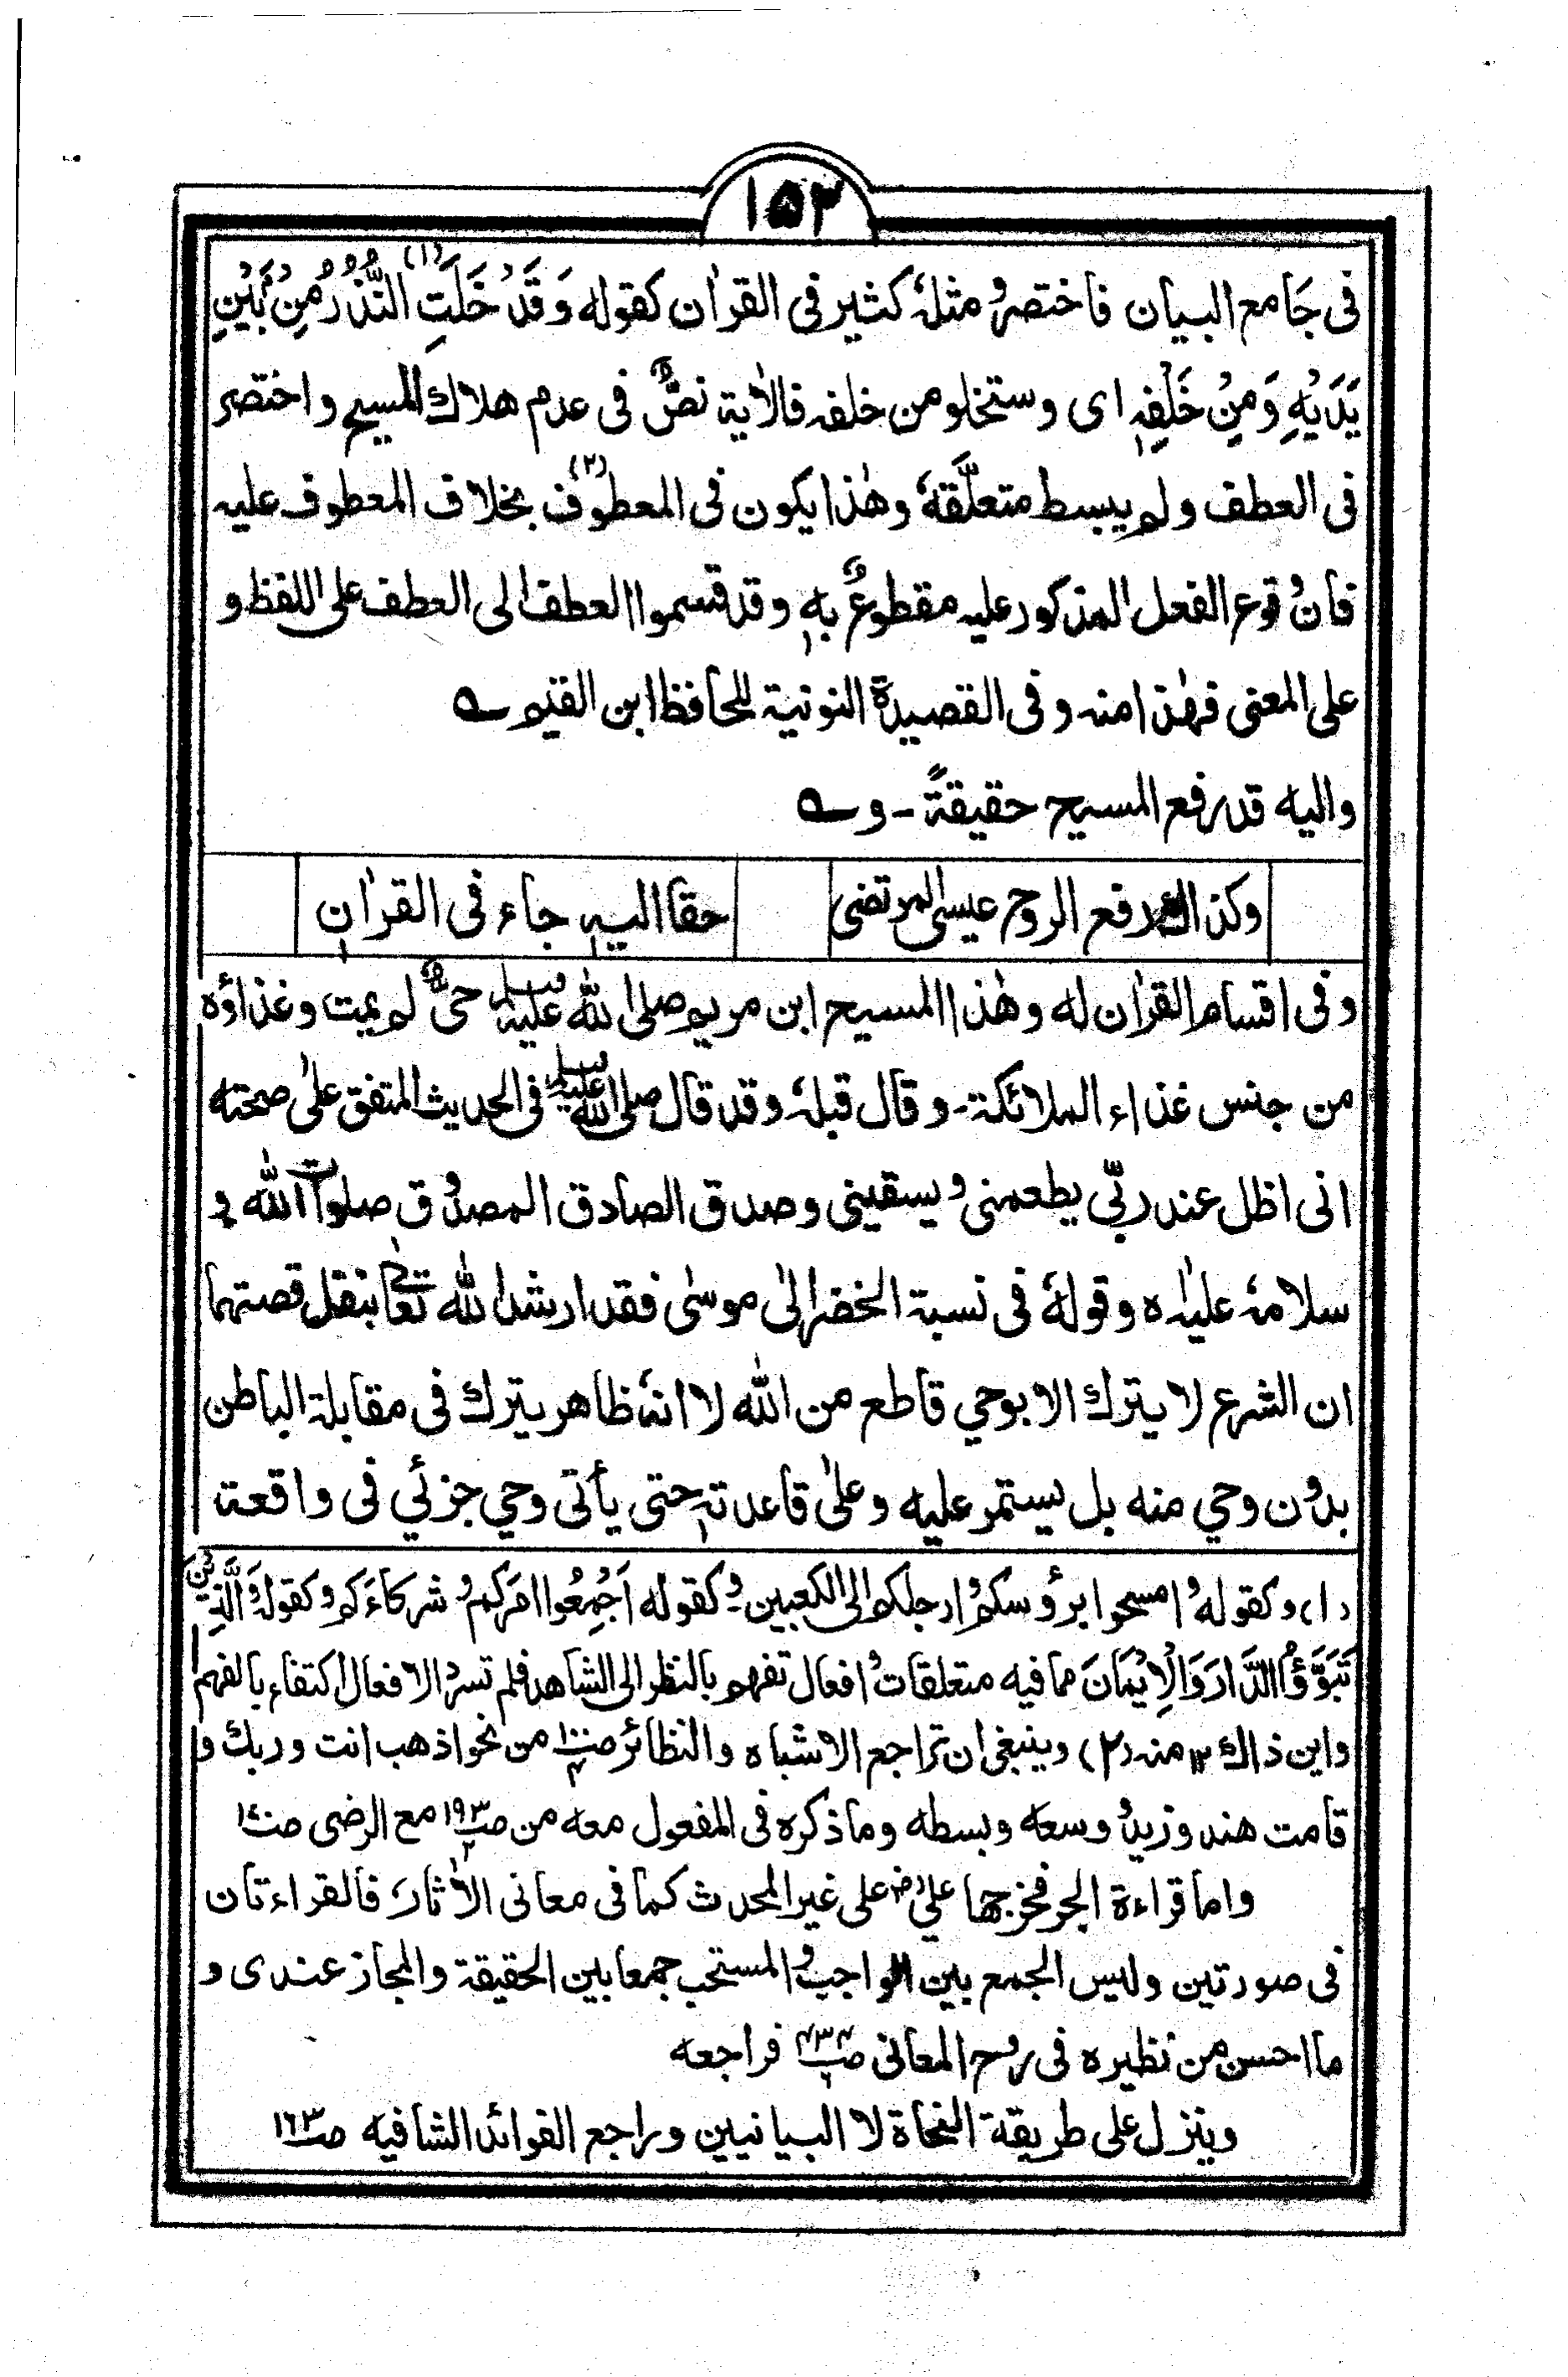 ١٥٣
فى جَامع البيان فاختصر و مثلهٗ كثير فى القراٰن كقوله وَقَدْ خَلَتِ (١) النُّذُرُ مِنْ بَيْنِ
يَدَيْهِ وَمِنْ خَلْفِهٖ اى وستخلو من خلفه فالاٰية نصٌّ فى عدم هلاك المسيح واختصر
فى العطف ولم يبسط متعلَّقهٗ وهٰذا يكون فى المعطوف (٢) بخلاف المعطوف عليه
فان وقوع الفعل المذكور عليه مقطوعٌ بهٖ وقد قسموا العطف الى العطف على اللفظ و
على المعنى فهٰذا منه وفى القصيدة النونية للحافظ ابن القيم ؎
واليه قد رفع المسيح حقيقةً - و ؎
وكذاك رفع الروح عيسى المرتضى
حقا اليهٖ جاء فى القراٰنٖ
وفى اقسام القراٰن له وهٰذا المسيح ابن مريم صلى الله عليه وسلم حىٌّ لم يمت وغذاؤه
من جنس غذاء الملائكة - وقال قبلهٗ وقد قال صلى الله عليه وسلم فى الحديث المتفق علىٰ صحته
انى اظل عند ربّى يطعمنى ويسقينى وصدق الصادق المصدوق صلوات الله و
سلامهٗ عليه ه وقولهٗ فى نسبة الخضر الىٰ موسىٰ فقد ارشد الله تعالىٰ بنقل قصتهما
ان الشرع لا يترك الا بوحي قاطع من الله لا انهٗ ظاهر يترك فى مقابلة الباطن
بدون وحي منه بل يستمر عليه وعلىٰ قاعدتهٖ حتى يأتى وحي جزئي فى واقعة
(١) وكقوله وامسحوا برؤسكم وارجلكم الى الكعبين وكقوله اَجْمِعُوا امركم و شركاءكم وكقوله وَالَّذِيْنَ
تَبَوَّؤُا الدَّارَ وَالْاِيْمَانَ مما فيه متعلقات وافعال تفهم بالنظر الى الشاهد فلم تسرد الافعال اكتفاء بالفهم
واين ذاك ١٢ منه (٢) وينبغى ان تراجع الاشباه والنظائر من نحو اذهب انت وربك و
قامت هند وزيد وسعه وبسطه وما ذكره فى المفعول معه من ص١٩٣ مع الرضى
واما قراءة الجر فخرجها علىؓ على غير المحدث كما فى معانى الاٰثار فالقراءتان
فى صورتين وليس الجمع بين الواجب والمستحب جمعا بين الحقيقة والمجاز عندى و
ما احسن من نظيره فى روح المعانى فراجعه
وينزل على طريقة النحاة لا البيانيين وراجع الفوائد الشافيه ص١٦٣